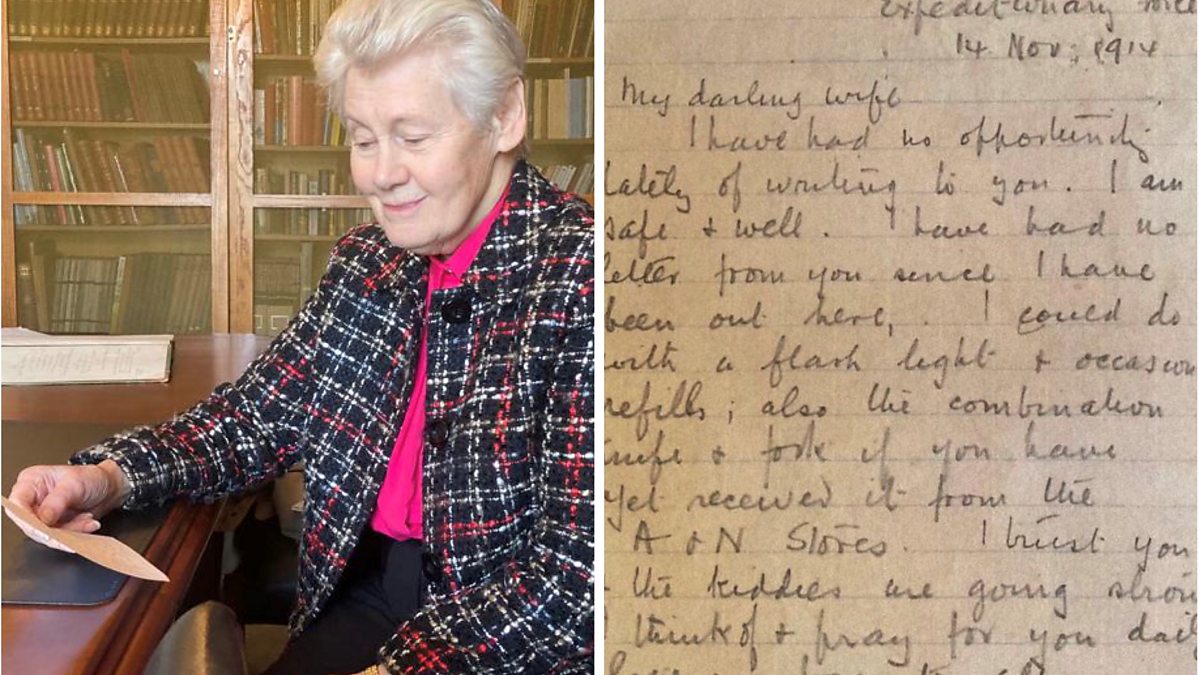 Expeditionary
14 Nov, 1914
My darling wife
I have had no opportunity
lately of writing to you. I am
safe & well. I have had no
letter from you since I have
been out here, . I could do
with a flash light & occasion
refills; also the combination
knife & fork if you have
yet received it from the
A & N Stores. I trust you
& the kiddies are going stron
I think of & pray for you dail